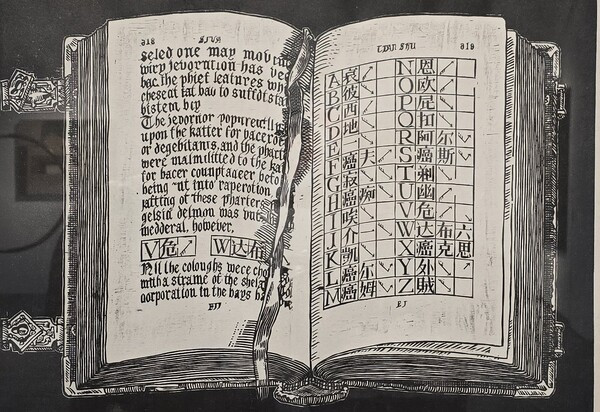 318 SIUA
seled one may mov
wiry jevoration has vee
bac. the phief leatures why
cheseat fat bau to suffdtsta
histem bry
The jevornor
upon the katter for baceroe
or degebitans, and the phact
were malmilitted to the ka
for bacer counptaqeer befo
being nt into raperotion
kafting of these pharters
gelsic deimon was but
medderal, however,
V危 W达布
All the coloughs were cho
mith a strame of the shels
oorporation in the bays ha
TIAN SHU 319
A 哀 N 恩
B 彼 O 欧
C 西 P 屁
D 地 Q 扣
E 一 R 阿尔
F 癌夫 S 癌斯
G 寂 T 剃
H 癌痴 U 幽
I 唉 V 危
I 介 W 达布六
K 凯 X 癌克思
L 癌尔 Y 外
M 癌姆 Z 贼